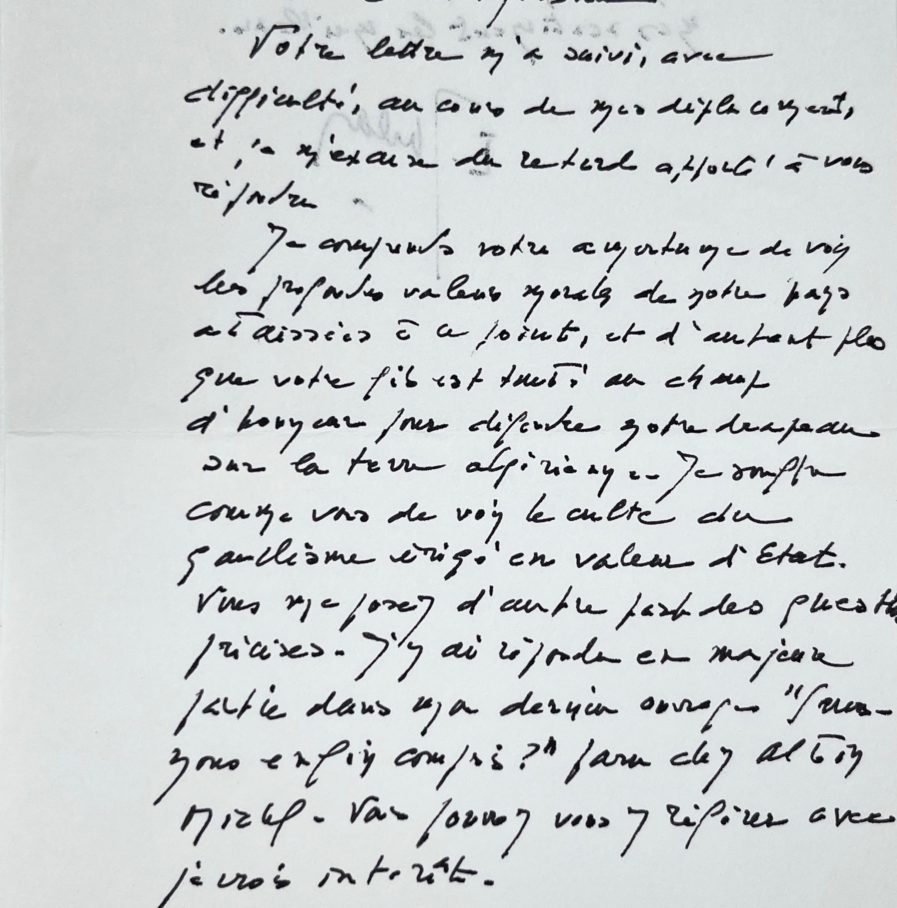 Votre lettre m'a suivi, avec
difficulté, au cours de mes déplacements,
et je m'excuse du retard apporté à vous
répondre
Je comprends votre amertume de voir
les profondes valeurs morales de notre pays
abaissées à ce point, et d'autant plus
que votre fils est tombé au champ
d'honneur pour défendre notre drapeau
sur la terre algérienne. Je souffre
comme vous de voir le culte du
gaullisme érigé en valeur d'Etat.
Vous me posez d'autre part des questions
précises. J'y ai répondu en majeure
partie dans mon dernier ouvrage "Serons-
nous enfin compris ?" paru chez Albin
Michel. Vous pouvez vous y référer avec
je crois intérêt.